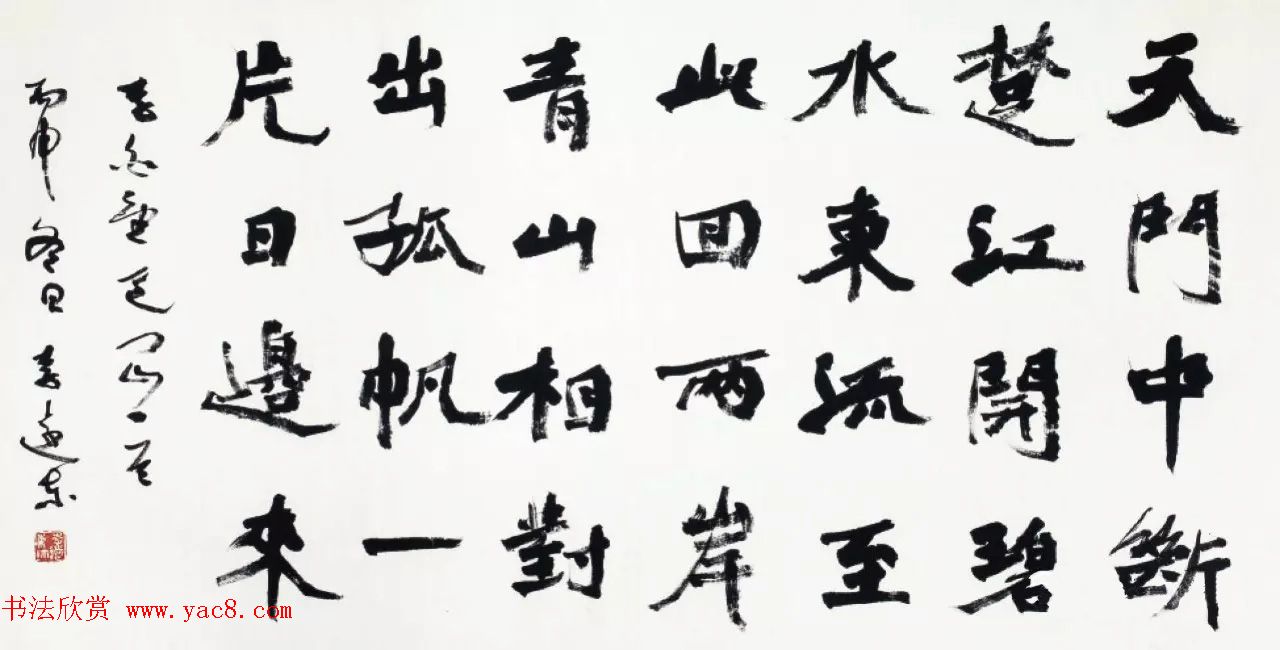 天門中斷
楚江開碧
水東流至
此回兩岸
青山相對
出孤帆一
片日邊來
李白望天門山一首
丙申冬日李遠東
书法欣赏 www.yac8.com